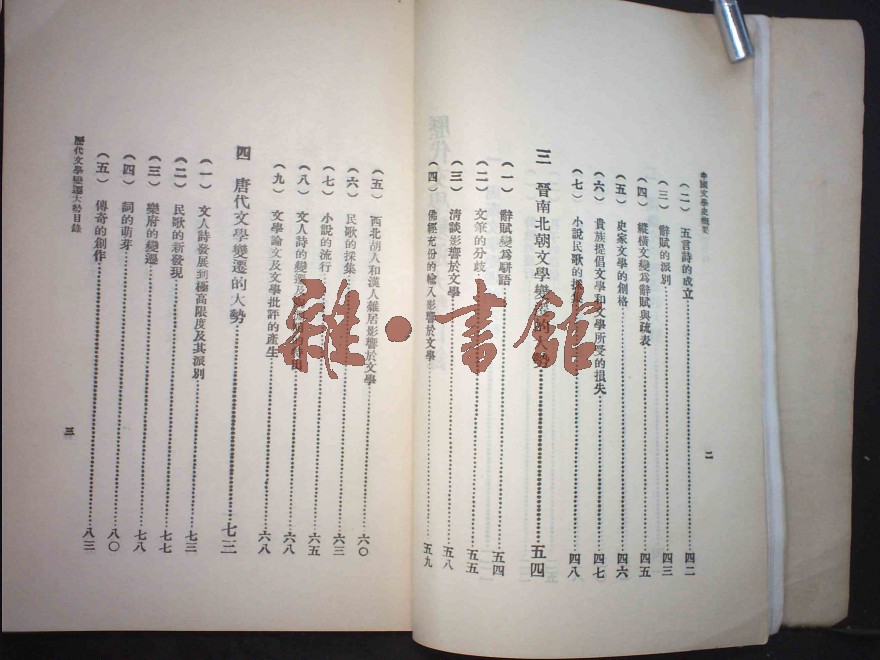 中國文學史概要
（二） 五言詩的成立……四二
（三） 辭賦的派別……四三
（四） 縱橫文變爲辭賦與疏表……四五
（五） 史家文學的創格……四六
（六） 貴族提倡文學和文學所受的損失……四七
（七） 小說民歌的採集……四八
三 晉南北朝文學變遷的大勢……五四
（一） 辭賦變爲駢語……五四
（二） 文筆的分歧……五五
（三） 清談影響於文學……五八
（四） 佛經充份的輸入影響於文學……五九
二
（五） 西北胡人和漢人雜居影響於文學……六〇
（六） 民歌的採集……六三
（七） 小說的流行……六五
（八） 文人詩的變遷及……六八
（九） 文學論文及文學批評的產生……六八
四 唐代文學變遷的大勢……七三
（一） 文人詩發展到極高限度及其派別……七三
（二） 民歌的新發現……七七
（三） 樂府的變遷……七八
（四） 詞的萌芽……八〇
（五） 傳奇的創作……八三
歷代文學變遷大勢目錄
三
雜·書館